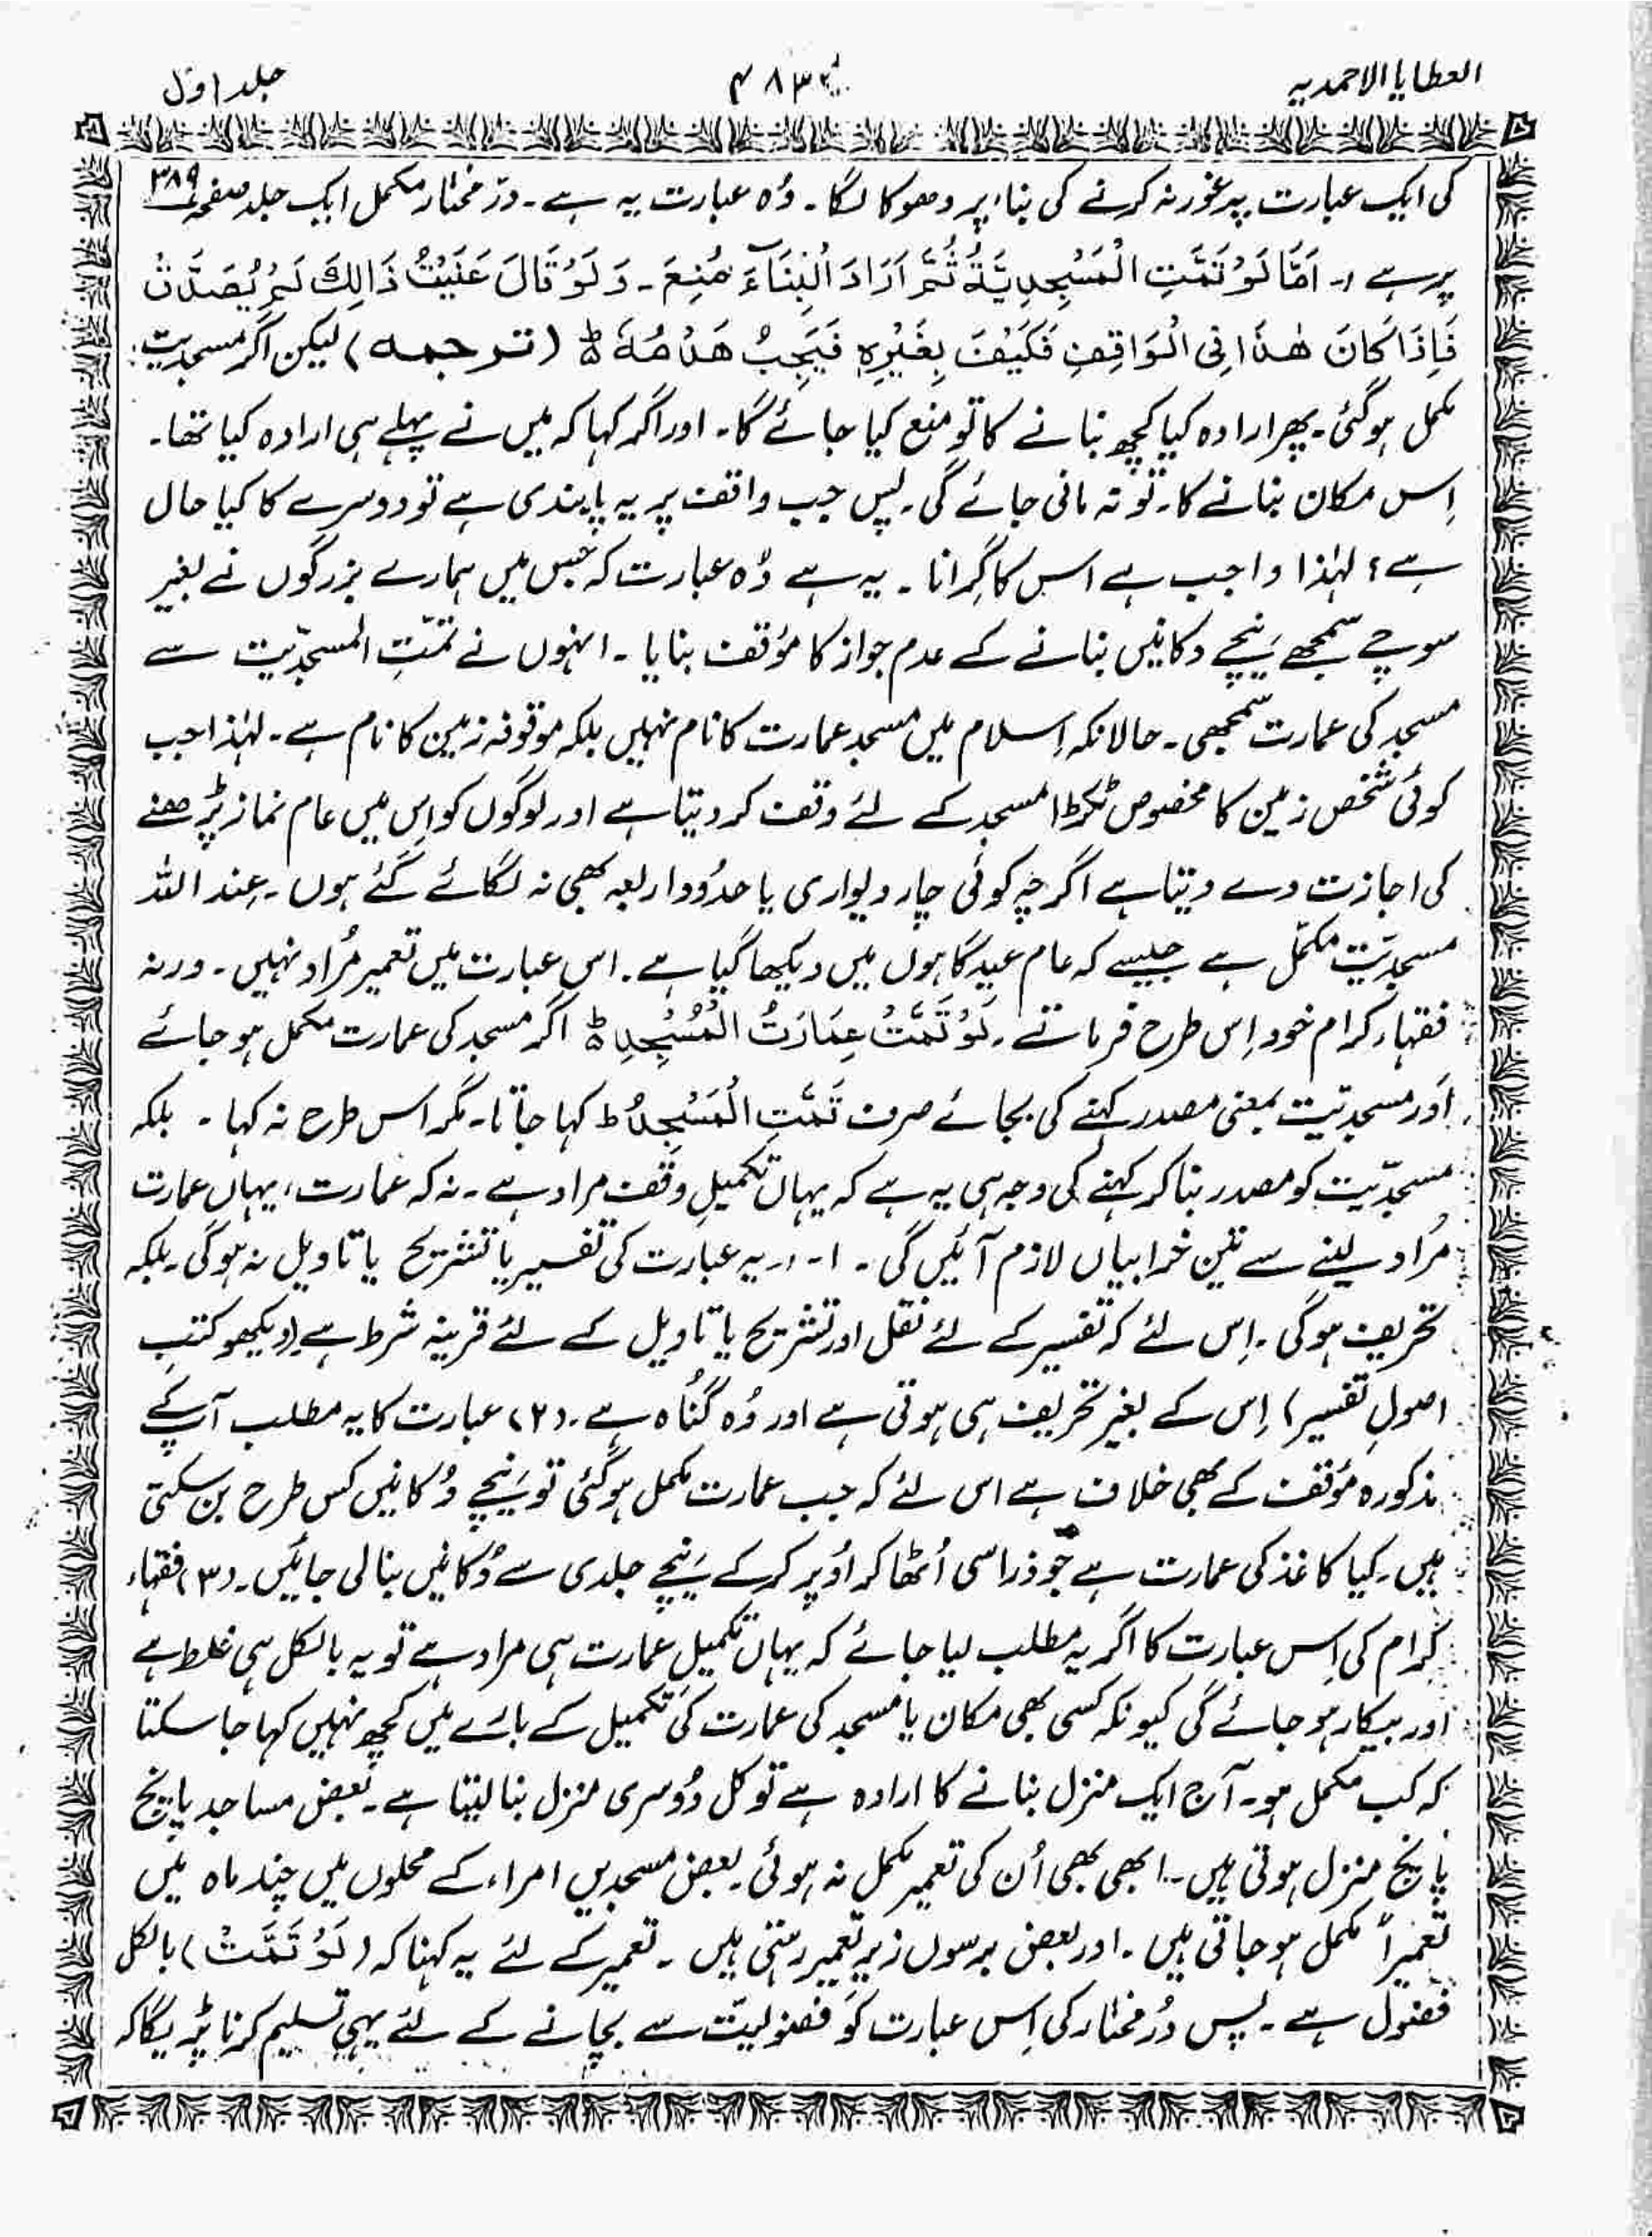 العطایا الاحمدیہ
۴۸۳
جلد اوّل
کی ایک عبارت پر غور نہ کرنے کی بناء پر دھوکا لگا۔ وُہ عبارت یہ ہے۔ درّ مختار مکمل ایک جلد صفحہ ۳۸۹
پر ہے :۔ اَمَّا لَوْ تَمَّتِ الْمَسْجِدِیَّۃُ ثُمَّ اَرَادَ الْبِنَآءَ مُنِعَ۔ وَلَوْ قَالَ عَنَیْتُ ذَالِكَ لَمْ یُصَدَّقْ
فَاِذَا كَانَ هٰذَا فِی الْوَاقِفِ فَكَیْفَ بِغَیْرِہٖ فَیَجِبُ هَدْمُهٗ ط (ترجمہ) لیکن اگر مسجدیت
مکمل ہو گئی۔ پھر ارادہ کیا کچھ بنانے کا تو منع کیا جائے گا۔ اور اگر کہا کہ میں نے پہلے ہی ارادہ کیا تھا۔
اِس مکان بنانے کا۔ تو نہ مانی جائے گی۔ پس جب واقف پر یہ پابندی ہے تو دوسرے کا کیا حال
ہے؟ لہٰذا واجب ہے اس کا گِرانا۔ یہ ہے وُہ عبارت کہ جس میں ہمارے بزرگوں نے بغیر
سوچے سمجھے نیچے دکانیں بنانے کے عدم جواز کا مؤقف بنایا۔ انہوں نے تمّتِ المسجدّیت سے
مسجد کی عمارت سمجھی۔ حالانکہ اِسلام میں مسجد عمارت کا نام نہیں بلکہ موقوفہ زمین کا نام ہے۔ لہٰذا جب
کوئی شخص زمین کا مخصوص ٹکڑا مسجد کے لئے وقف کر دیتا ہے اور لوگوں کو اِس میں عام نماز پڑھنے
کی اجازت دے دیتا ہے اگرچہ کوئی چار دیواری یا حدُود اربعہ بھی نہ لگائے گئے ہوں۔ عِند اللہ
مسجدیّت مکمّل ہے جیسے کہ عام عید گاہوں میں دیکھا گیا ہے۔ اس عبارت میں تعمیر مُراد نہیں۔ ورنہ
فقہاء کرام خود اِس طرح فرماتے۔ لَوْ تَمَّتْ عِمَارَتُ الْمَسْجِدِ ط اگر مسجد کی عمارت مکمل ہو جائے
اَور مسجدیّت بمعنی مصدر کہنے کی بجائے صرف تَمَّتِ الْمَسْجِدُ ط کہا جاتا۔ مگر اس طرح نہ کہا۔ بلکہ
مسجدّیت کو مصدر بنا کر کہنے کی وجہ ہی یہ ہے کہ یہاں تکمیلِ وقف مراد ہے۔ نہ کہ عمارت، یہاں عمارت
مُراد لینے سے تین خرابیاں لازم آئیں گی۔ ۱۔ :۔ یہ عبارت کی تفسیر یا تشریح یا تاویل نہ ہو گی۔ بلکہ
تحریف ہوگی۔ اِس لئے کہ تفسیر کے لئے نقل اور تشریح یا تاویل کے لئے قرینہ شرط ہے (دیکھو کتبِ
اصولِ تفسیر) اِس کے بغیر تحریف ہی ہوتی ہے اور وُہ گُناہ ہے۔ (۲) عبارت کا یہ مطلب آپ کے
مذکورہ مؤقف کے بھی خلاف ہے اس لئے کہ جب عمارت مکمل ہو گئی تو نیچے دُکانیں کس طرح بن سکتی
ہیں۔ کیا کاغذ کی عمارت ہے جو ذرا سی اُٹھا کر اُوپر کر کے نیچے جلدی سے دُکانیں بنا لی جائیں۔ (۳) فقہاء
کرام کی اِس عبارت کا اگر یہ مطلب لیا جائے کہ یہاں تکمیل عمارت ہی مراد ہے تو یہ بالکل ہی غلط ہے
اور بیکار ہو جائے گی کیونکہ کسی بھی مکان یا مسجد کی عمارت کی تکمیل کے بارے میں کچھ نہیں کہا جا سکتا
کہ کب مکمل ہو۔ آج ایک منزل بنانے کا ارادہ ہے تو کل دُوسری منزل بنا لیتا ہے۔ بعض مساجد پانچ
پانچ منزل ہوتی ہیں۔ ابھی بھی اُن کی تعمیر مکمل نہ ہوئی۔ بعض مسجدیں امراء کے محلوں میں چند ماہ میں
تعمیراً مکمل ہو جاتی ہیں۔ اور بعض برسوں زیرِ تعمیر رہتی ہیں۔ تعمیر کے لئے یہ کہنا کہ (لَوْ تَمَّتْ) بالکل
فضول ہے۔ پس دُر مختار کی اِس عبارت کو فضولیّت سے بچانے کے لئے یہی تسلیم کرنا پڑیگا کہ